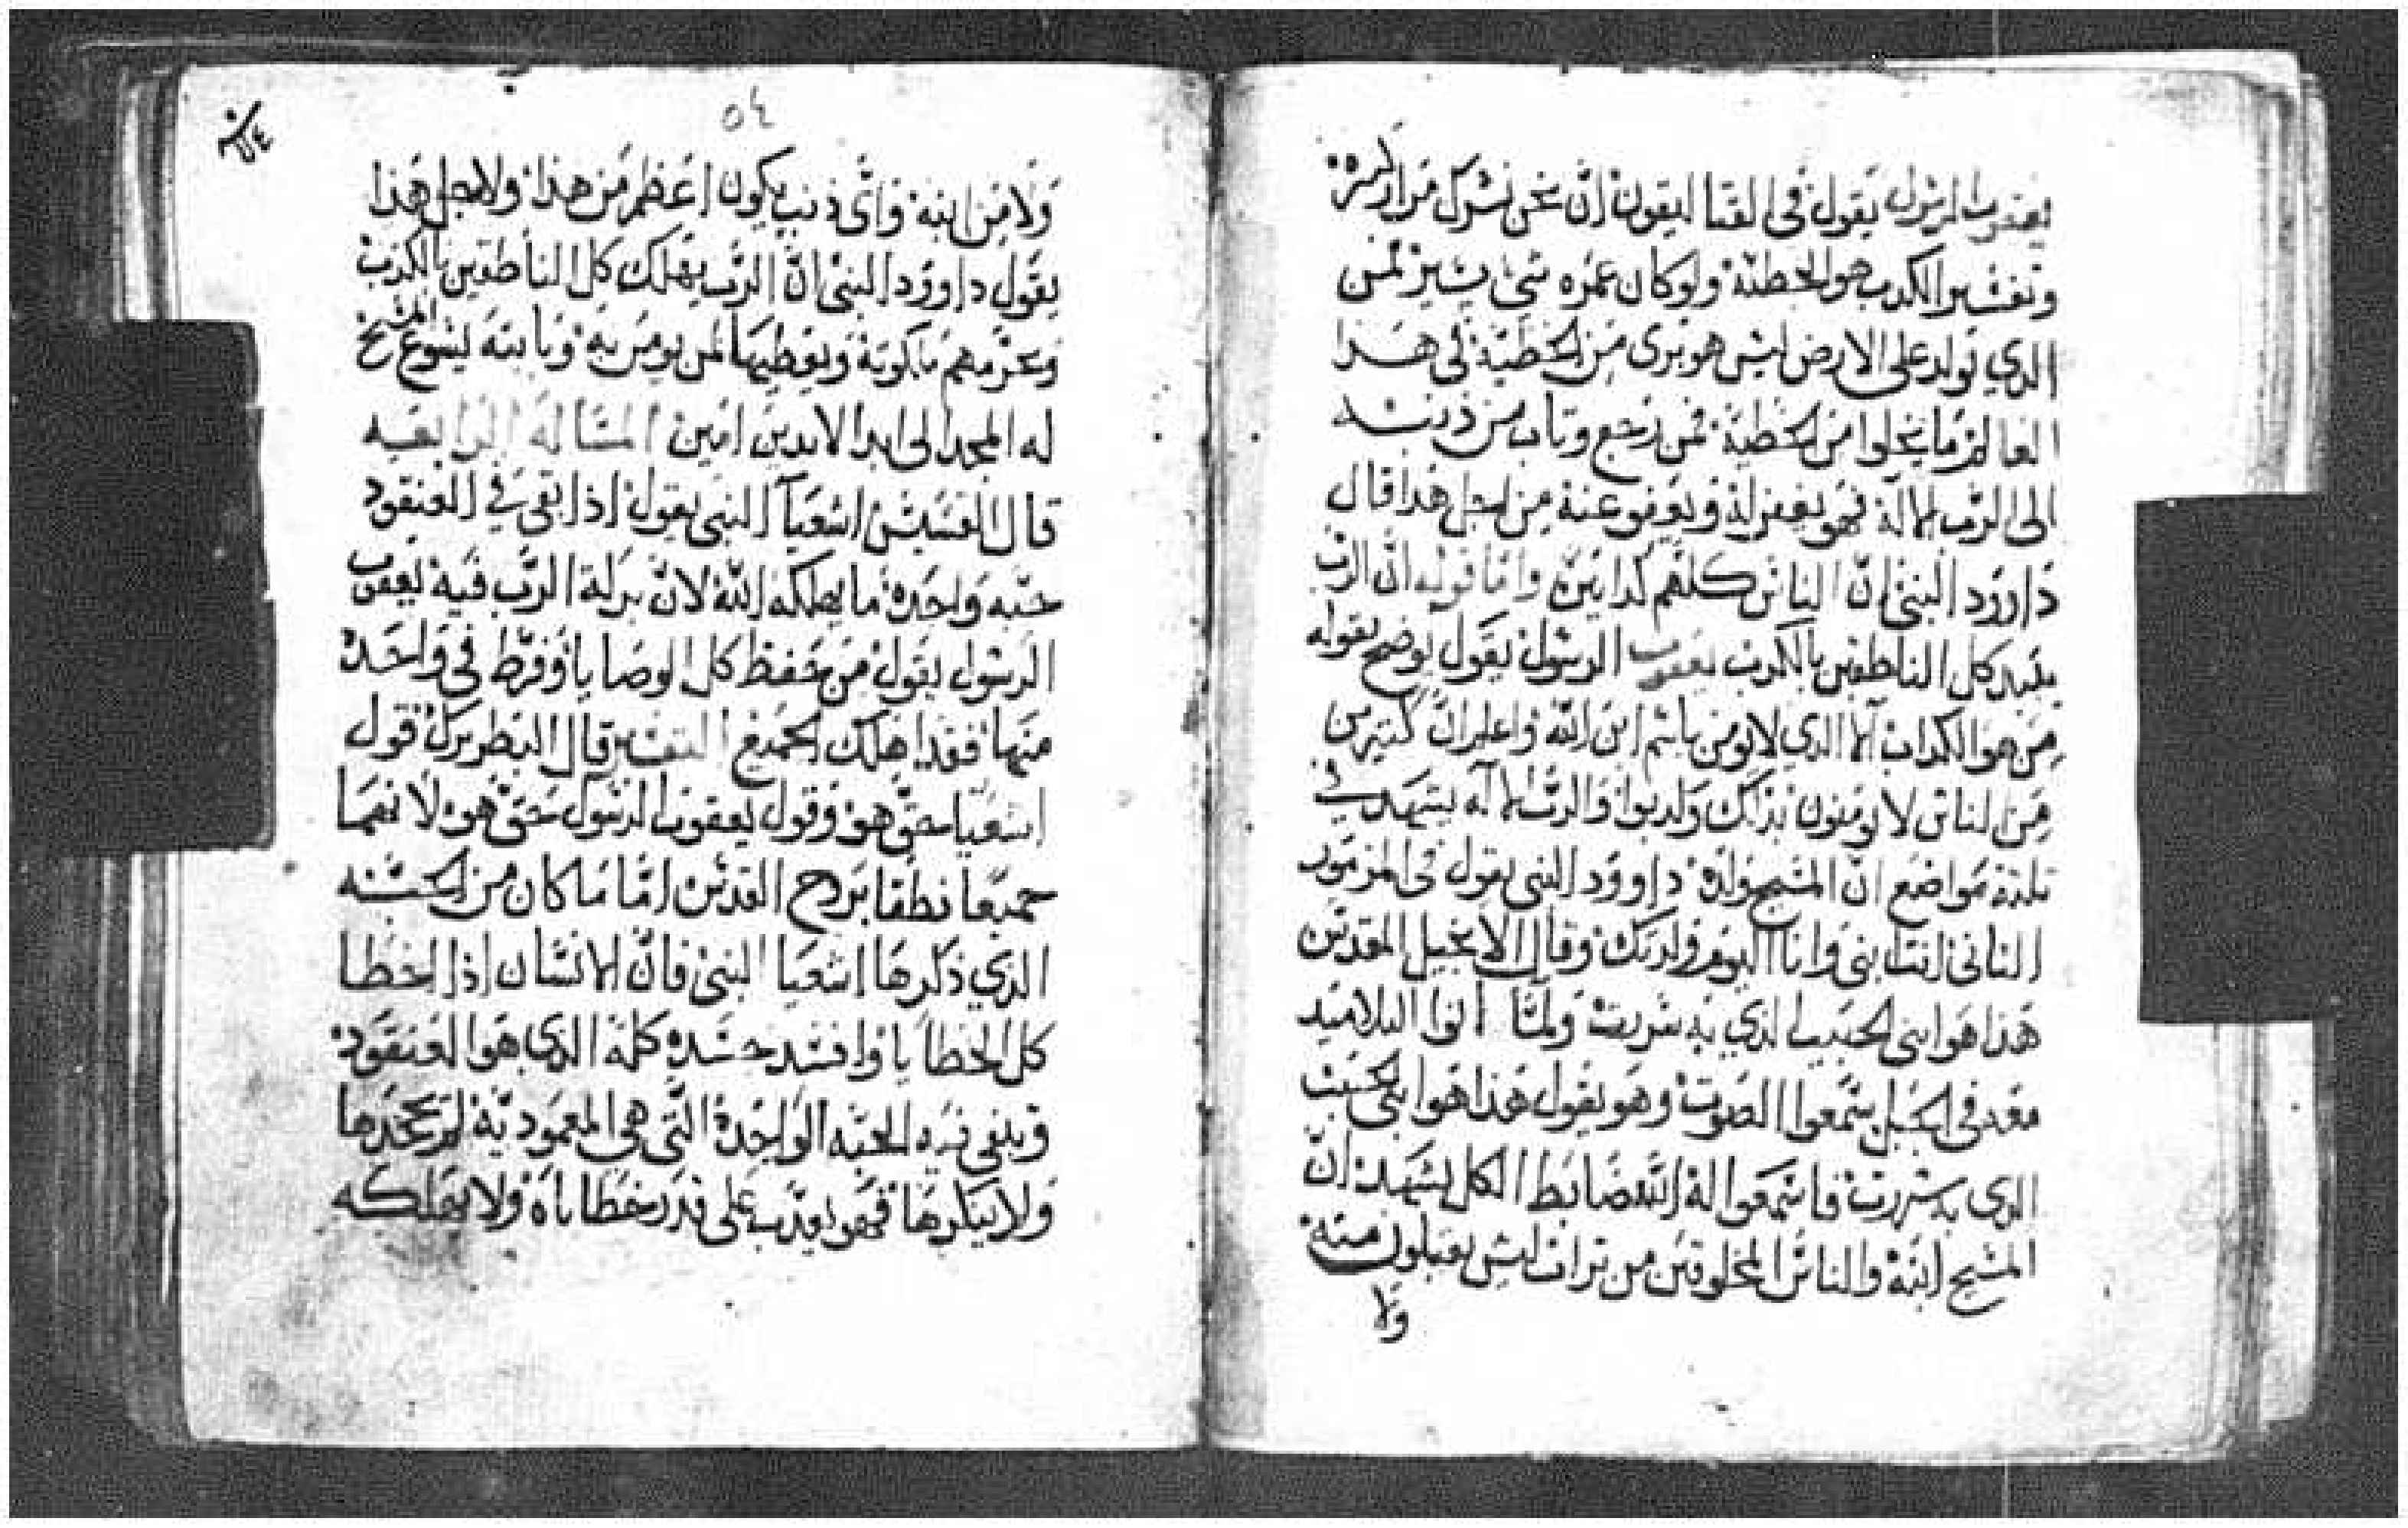 يعقوب الرسول يقول في القتاليقون ان نحن نشرك مرار كثيرة
وتفسير الكدب هو الخطية ولوكان عمره شي يسير لمن
الدي تولد على الارض ليس هو بري من الخطية لى هدا
العالم ما يخلوا من الخطية فمن رجع وتاب من ذنبه
الى الرب الاله فهو يغفر له ويعفو عنه من اجل هدا قال
داوود النبي ان الناس كلهم كدابين واما قوله ان الرب
يبيد كل الناطقين بالكدب يعقوب الرسول يقول يوضح بقوله
من هو الكداب الا الدي لا يومن باسم ابن الله واعلم ان كتير من
من الناس لا يومنون بذلك وكدبوا والرب الاله يشهد في
تلتة مواضع ان المسيح ولده داوود النبي يقول في المزمور
التاني انت ابني وانا اليوم ولدتك وقال الانجيل المقدس
هذا هو ابني الحبيب الذي به سررت ولما اتوا التلاميد
معه في الجبل سمعوا الصوت وهو يقول هذا هوا ابني الحبيب
الدي به سررت فاسمعوا له الله ضابط الكل يشهد ان
المسيح ابنه والناس المخلوقين من تراب ليس يقبلون منه
ولا
٥٤
ولا من ابنه واي ذنب يكون اعظم من هذا ولاجل هذا
يقول داوود النبي ان الرب يهلك كل الناطقين بالكدب
ويحرمهم ملكوته ويعطيها لمن يومن به وبابنه يسوع المسيح
له المجد الى ابد الابدين امين المساله الرابعه
قال القسيس اشعيا النبي يقول اذا بقي في العنقود
حبه واحده ما يهلكه الله لان بركة الرب فيه يعقوب
الرسول يقول من حفظ كل الوصايا وفرط في واحدة
منها فقد اهلك الجميع التفسير قال البطريرك قول
اشعيا حق هو وقول يعقوب الرسول حق هو لانهما
جميعا نطقا بروح القدس اما ما كان من الحبه
الذي ذكرها اشعيا النبي فان الانسان اذا اخطا
كل الخطايا وافسد جسده كله الدي هو العنقود
وبقي فيه الحبه الواحدة التي هي المعمودية لم يجحدها
ولا ينكرها فهو يعدب على قدر خطاياه ولا يهلكه